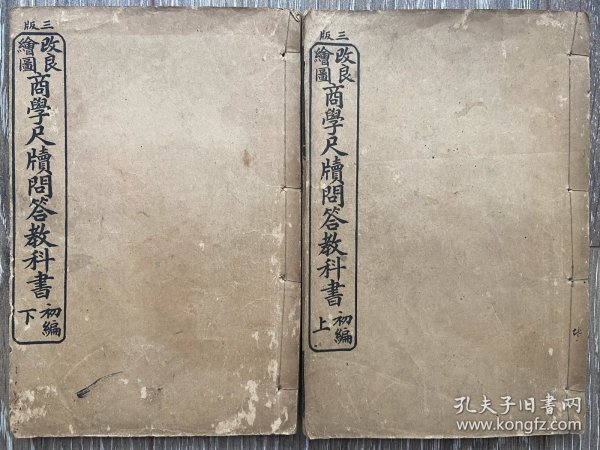 三版
改良
繪圖
商學尺牘問答教科書
初編
上
三版
改良
繪圖
商學尺牘問答教科書
初編
下
孔夫子旧書网
www.kongfz.com